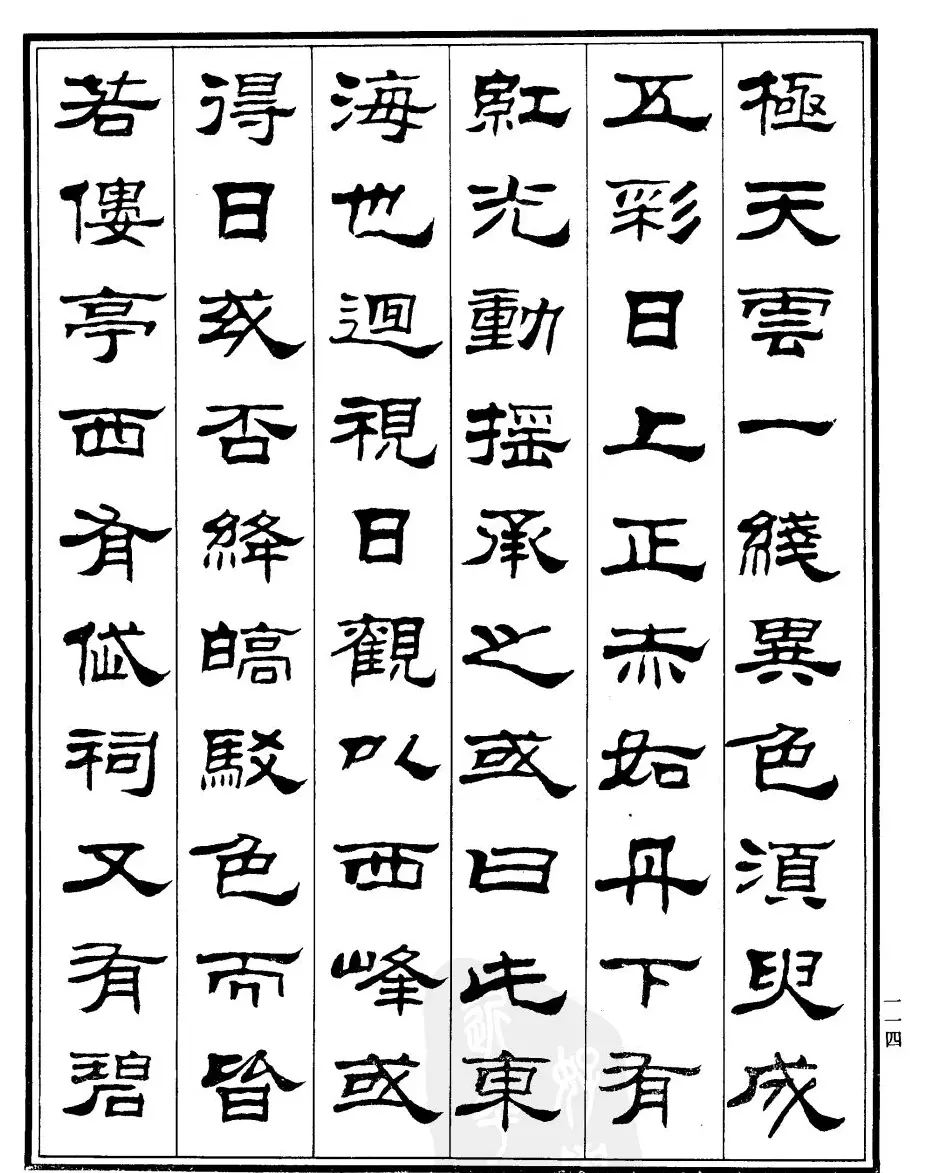 極天雲一綫異色須臾成
五彩日上正赤如丹下有
紅光動摇承之或曰此東
海也迴視日觀以西峰或
得日或否絳皜駁色而皆
若僂亭西有岱祠又有碧
一一四